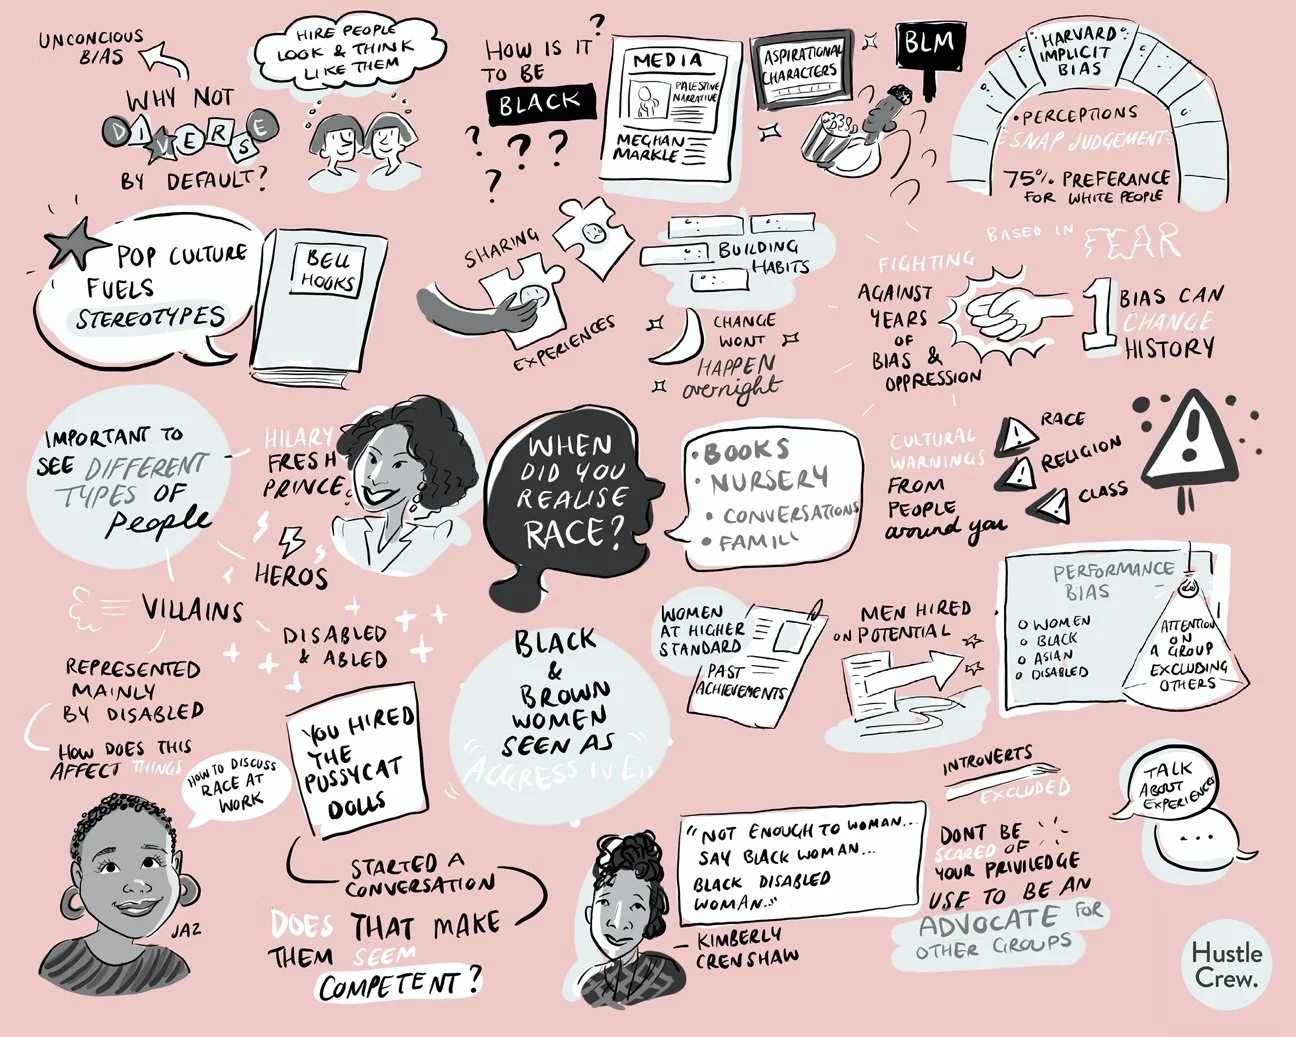 UNCONCIOUS
BIAS
WHY NOT
DIVERSE
BY DEFAULT?
HIRE PEOPLE
LOOK & THINK
LIKE THEM
HOW IS IT
TO BE
BLACK
?
? ? ?
?
MEDIA
PALESTINE
NARRATIVE
MEGHAN
MARKLE
ASPIRATIONAL
CHARACTERS
BLM
HARVARD
IMPLICIT
BIAS
• PERCEPTIONS
SNAP JUDGEMENT
75% PREFERANCE
FOR WHITE PEOPLE
POP CULTURE
FUELS
STEREOTYPES
BELL
HOOKS
SHARING
EXPERIENCES
BUILDING
HABITS
CHANGE
WONT
HAPPEN
overnight
FIGHTING
AGAINST
YEARS
OF
BIAS &
OPPRESSION
BASED IN FEAR
1 BIAS CAN
CHANGE
HISTORY
IMPORTANT TO
SEE DIFFERENT
TYPES OF
People
HILARY
FRESH
PRINCE
HEROS
VILLAINS
DISABLED
& ABLED
REPRESENTED
MAINLY
BY DISABLED
HOW DOES THIS
AFFECT THINGS
WHEN
DID YOU
REALISE
RACE?
• BOOKS
• NURSERY
• CONVERSATIONS
• FAMILY
CULTURAL
WARNINGS
FROM
PEOPLE
around you
! RACE
! RELIGION
! CLASS
!
WOMEN
AT HIGHER
STANDARD
PAST
ACHIEVEMENTS
MEN HIRED
ON POTENTIAL
PERFORMANCE
BIAS
○ WOMEN
○ BLACK
○ ASIAN
○ DISABLED
ATTENTION
ON
A GROUP
EXCLUDING
OTHERS
BLACK
&
BROWN
WOMEN
SEEN AS
AGGRESSIVE
HOW TO DISCUSS
RACE AT
WORK
JAZ
YOU HIRED
THE
PUSSYCAT
DOLLS
STARTED A
CONVERSATION
DOES THAT MAKE
THEM SEEM
COMPETENT?
"NOT ENOUGH TO WOMAN...
SAY BLACK WOMAN...
BLACK DISABLED
WOMAN.."
- KIMBERLY
CRENSHAW
INTROVERTS
EXCLUDED
DONT BE
SCARED OF
YOUR PRIVILEDGE
USE TO BE AN
ADVOCATE FOR
OTHER GROUPS
TALK
ABOUT
EXPERIENCES
...
Hustle
Crew.